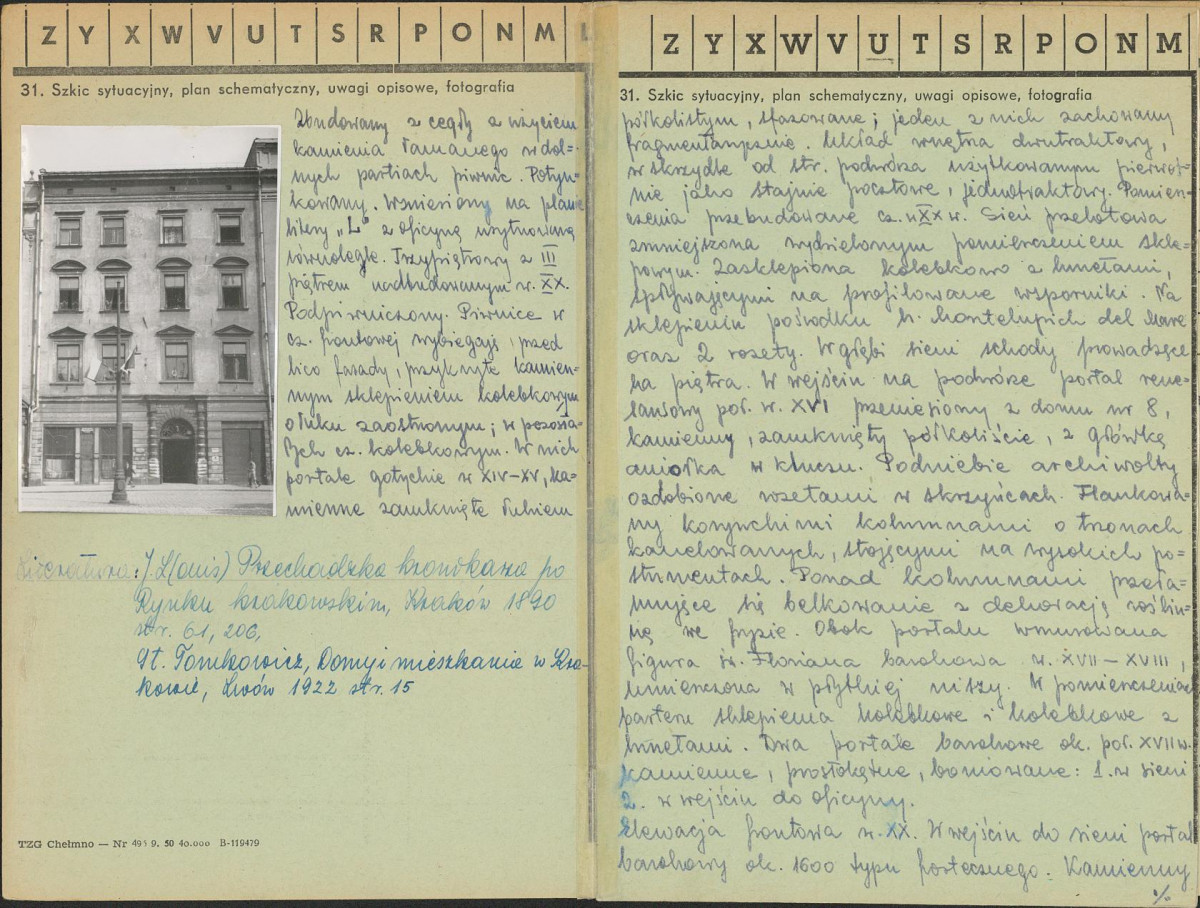 Z Y X W V U T S R P O N M L
31. Szkic sytuacyjny, plan schematyczny, uwagi opisowe, fotografia
Zbudowany z cegły z użyciem
kamienia łamanego w dol=
nych partiach piwnic. Potyn=
kowany. Wzniesiony na planie
litery „L" z oficyną usytuowaną
równolegle. Trzypiętrowy z III
piętrem nadbudowanym w. XX.
Podpiwniczony. Piwnice w
cz. frontowej wybiegają przed
lico fasady, przykryte kamien=
nym sklepieniem kolebkowym
o łuku zaostrzonym; w pozosta=
łych cz. kolebkowym. W nich
portale gotyckie w XIV–XV, ka=
mienne zamknięte łukiem
Literatura: J. L(ouis) Przechadzka kronikarza po
Rynku krakowskim, Kraków 1890
str. 61, 206,
St. Tomkowicz, Domy i mieszkania w Kra-
kowie, Lwów 1922 str. 15
TZG Chełmno — Nr 495 9. 50 40.000 B-119479
Z Y X W V U T S R P O N M
31. Szkic sytuacyjny, plan schematyczny, uwagi opisowe, fotografia
półkolistym, sfazowane; jeden z nich zachowany
fragmentarycznie. Układ wnętrza dwutraktowy,
w skrzydle od str. podwórza użytkowanym pierwot=
nie jako stajnie pocztowe, jednotraktowy. Pomiesz=
czenia przebudowane cz. w XX w. Sień przelotowa
zmniejszona wydzielonym pomieszczeniem skle=
powym. Zasklepiona kolebkowo z lunetami,
spływającymi na profilowane wsporniki. Na
sklepieniu pośrodku h. Montelupich del Mare
oraz 2 rozety. W głębi sieni schody prowadzące
na piętra. W wejściu na podwórze portal rene=
sansowy poł. w. XVI przeniesiony z domu nr 8,
kamienny, zamknięty półkoliście, z główką
aniołka w kluczu. Podniebie archiwolty
ozdobione rozetami w skrzyńcach. Flankowa=
ny korynckimi kolumnami o trzonach
kanelowanych, stojącymi na wysokich po=
stumentach. Ponad kolumnami przeła=
mujące się belkowanie z dekoracją roślin=
ną we fryzie. Obok portalu wmurowana
figura św. Floriana barokowa w. XVII–XVIII,
umieszczona w płytkiej niszy. W pomieszczeniach
parteru sklepienia kolebkowe i kolebkowe z
lunetami. Dwa portale barokowe ok. poł. XVII w.
kamienne, prostokątne, boniowane: 1. w sieni
2. w wejściu do oficyny.
Elewacja frontowa w. XX. W wejściu do sieni portal
barokowy ok. 1600 typu fortecznego. Kamienny
%